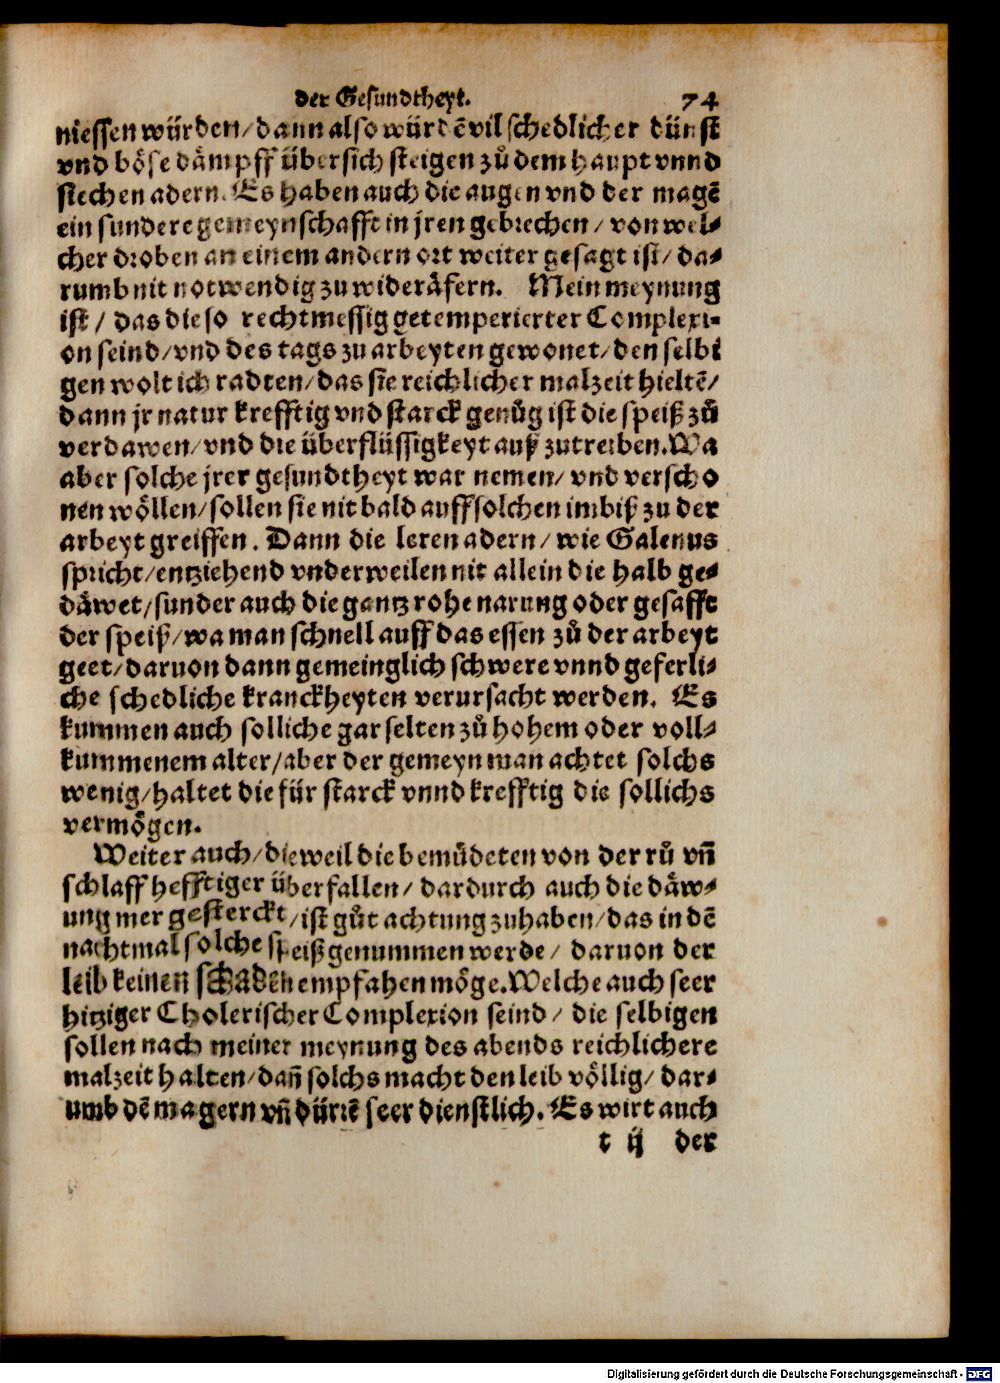 der Gesundtheyt. 74
niessen würden/dann also würdē vil schedlicher dünst
vnd böse dämpff übersich steigen zů dem haupt vnnd
stechen adern. Es haben auch die augen vnd der magē
ein sundere gemeynschafft in jren gebrechen/ von wel-
cher droben an einem andern ort weiter gesagt ist/ da-
rumb nit notwendig zu wideräfern. Mein meynung
ist/ das die so rechtmessig getemperierter Complexi-
on seind/vnd des tags zu arbeyten gewonet/den selbi
gen wolt ich radten/das sie reichlicher malzeit hieltē/
dann jr natur krefftig vnd starck genůg ist die speiß zů
verdawen/vnd die überflüssigkeyt auß zutreiben. Wa
aber solche jrer gesundtheyt war nemen/ vnd verscho
nen wöllen/sollen sie nit bald auff solchen imbiß zu der
arbeyt greiffen. Dann die leren adern/ wie Galenus
spricht/entziehend vnderweilen nit allein die halb ge-
däwet/sunder auch die gantz rohe narung oder gesafft
der speiß/wa man schnell auff das essen zů der arbeyt
geet/daruon dann gemeinglich schwere vnnd geferli-
che schedliche kranckheyten verursacht werden. Es
kummen auch solliche gar selten zů hohem oder voll-
kummenem alter/aber der gemeyn man achtet solchs
wenig/haltet die für starck vnnd krefftig die sollichs
vermögen.
Weiter auch/dieweil die bemůdeten von der rů vñ
schlaff hefftiger überfallen/ dardurch auch die däw-
ung mer gesterckt/ist gůt achtung zuhaben/das in dē
nachtmal solche speiß genummen werde/ daruon der
leib keinen schaden empfahen möge. Welche auch seer
hitziger Cholerischer Complexion seind/ die selbigen
sollen nach meiner meynung des abends reichlichere
malzeit halten/dañ solchs macht den leib völlig/ dar-
umb dē magern vñ dürrē seer dienstlich. Es wirt auch
t ij der
Digitalisierung gefördert durch die Deutsche Forschungsgemeinschaft - DFG